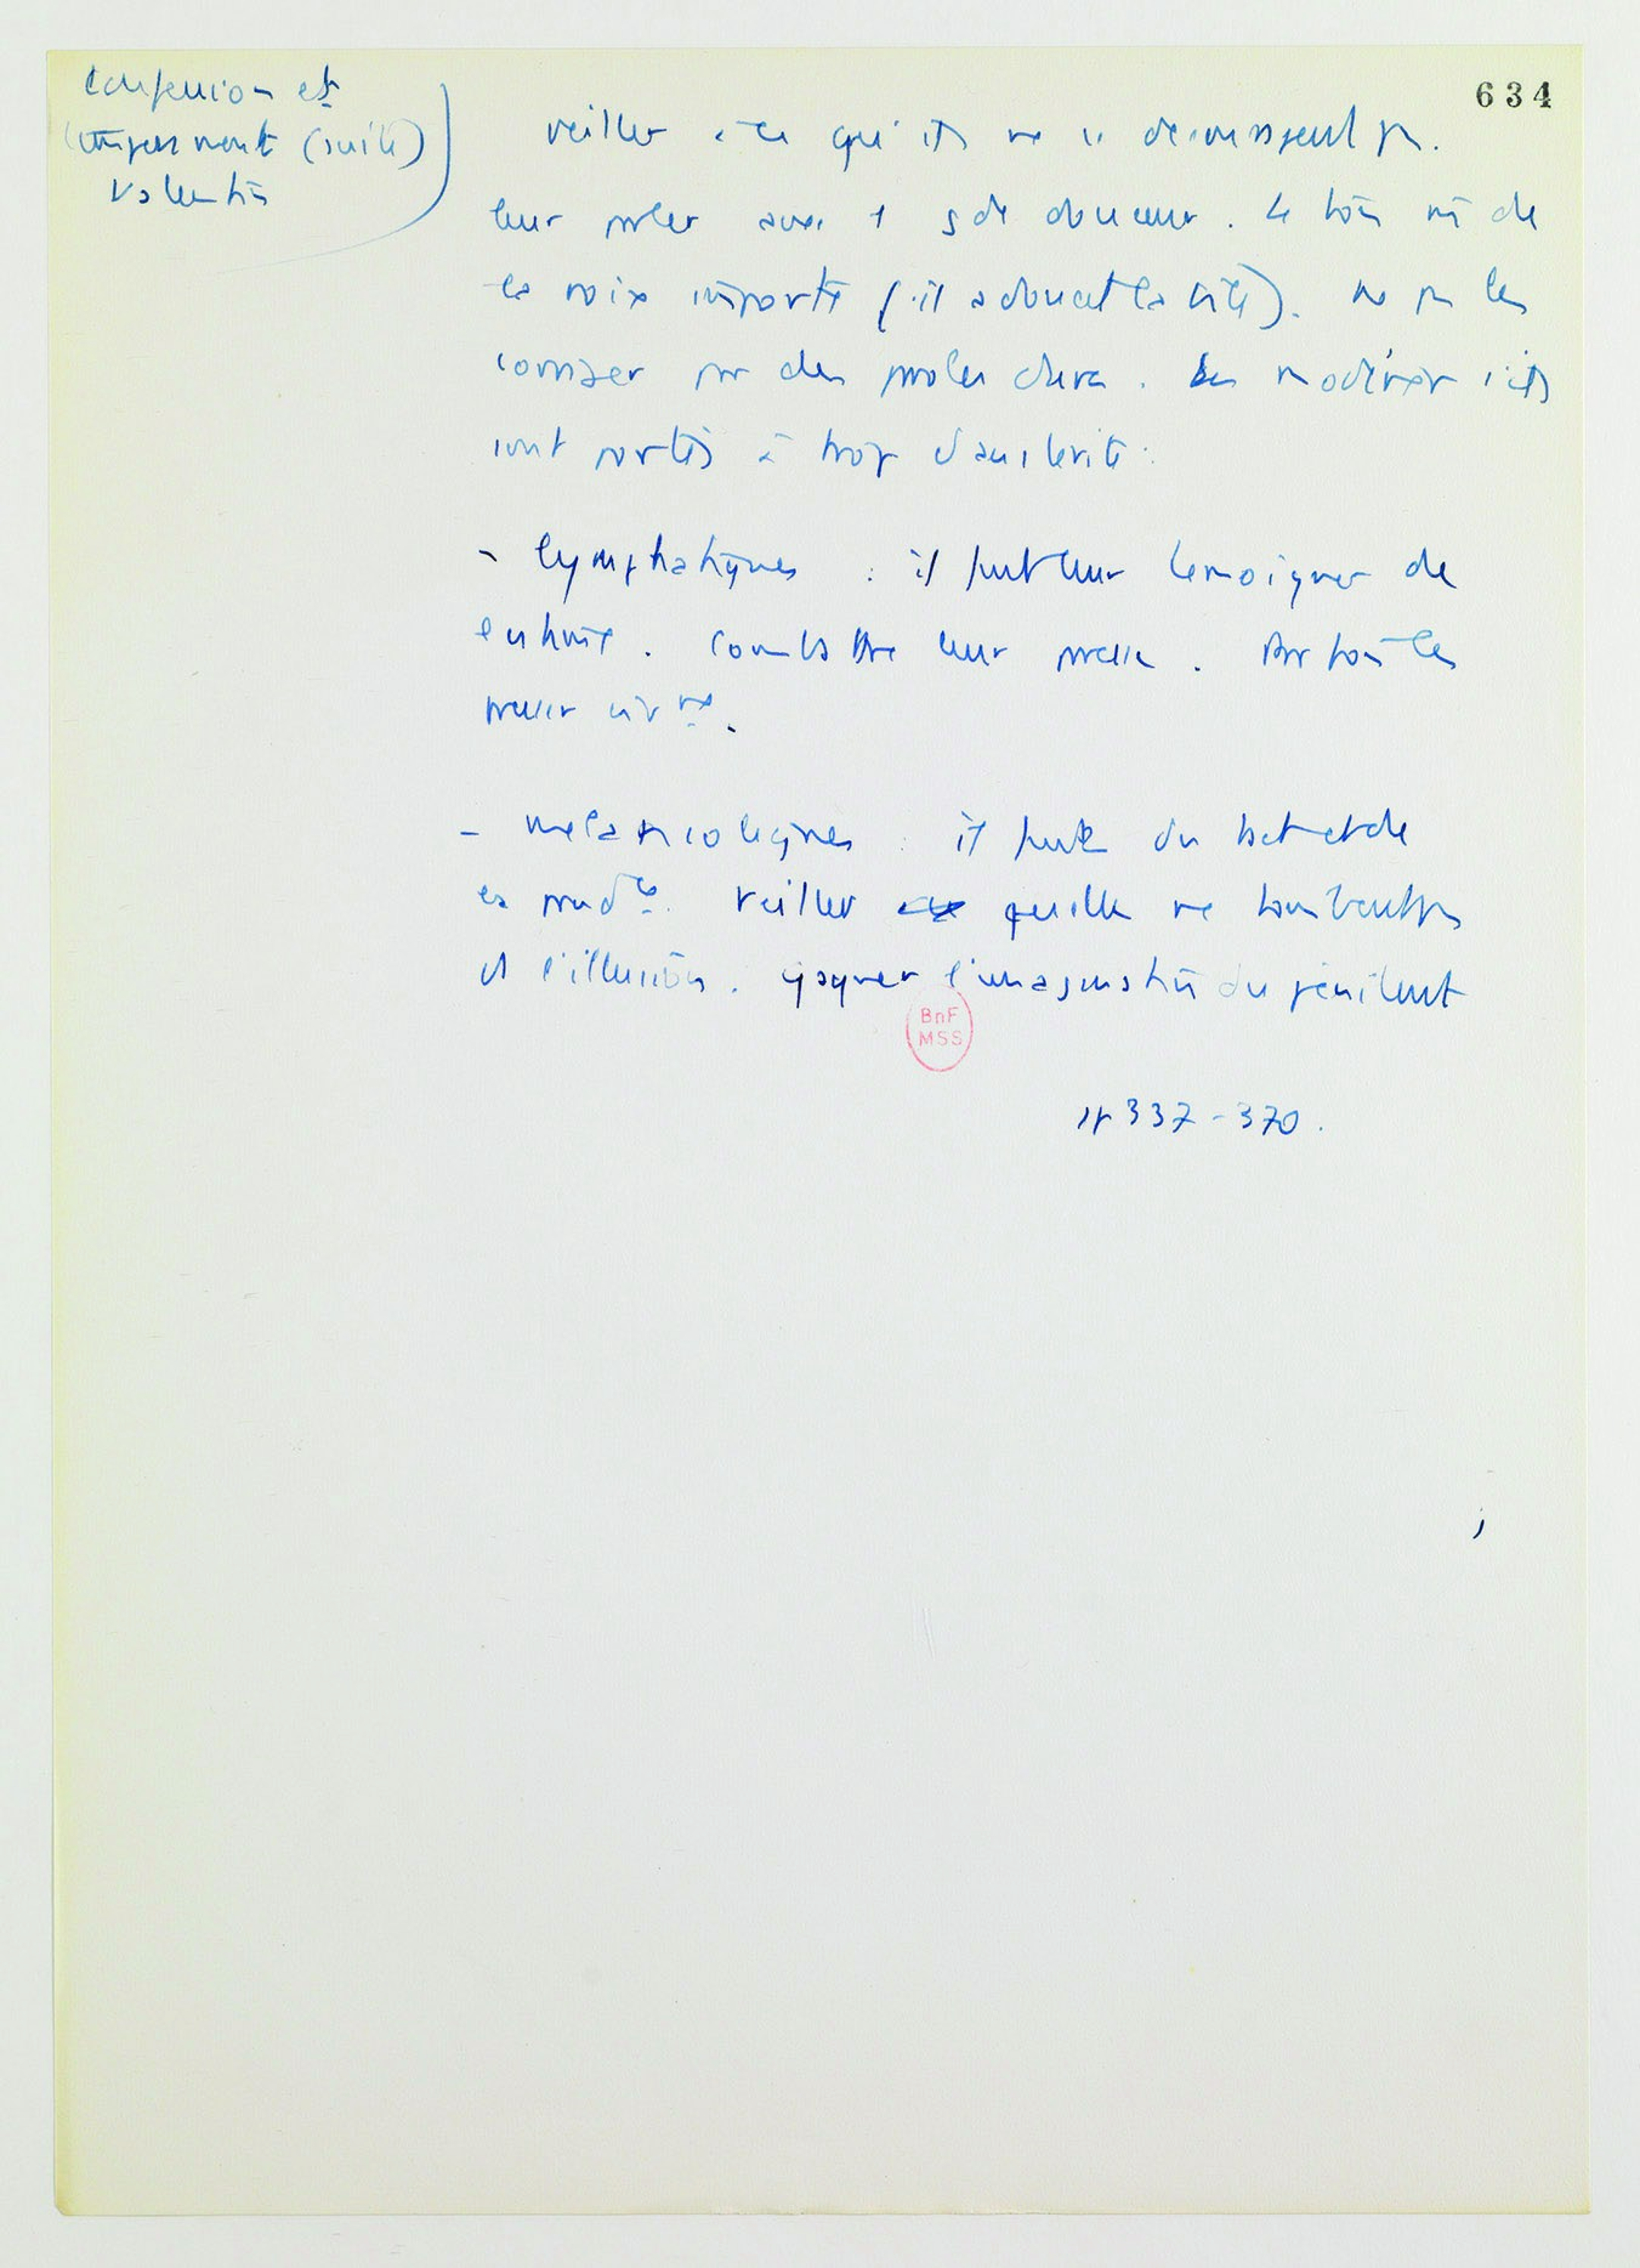 634
Confession et
tempérament (suite)
Valentin
veiller à ce qu'ils ne se découragent pas.
leur parler avec 1 gde douceur. Le ton m̂ de
la voix importe (il adoucit la bile). Ne pas les
corriger par des paroles dures. Les modérer s'ils
sont portés à trop d'austérité.
- lymphatiques : il faut leur témoigner de
. Combattre leur paresse. Partois les
presser vivmt.
- mélancoliques : il faut du tact et de
la prudce. Veiller qu'elles ne tombent pas
ds l'illusion. Gagner l'imagination du pénitent
BnF
MSS
pp 337-370.